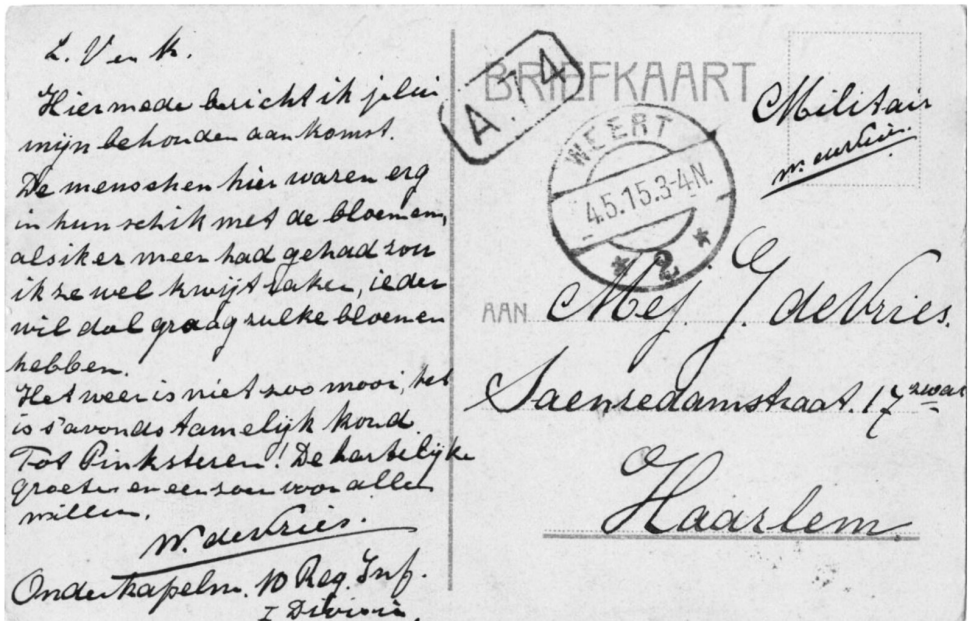 L. V en K.
Hiermede bericht ik jelui
mijn behouden aankomst.
De menschen hier waren erg
in hun schik met de bloemen,
als ik er meer had gehad zou
ik ze wel kwijt raken, ieder
wil dol graag zulke bloemen
hebben.
Het weer is niet zoo mooi, het
is s'avonds tamelijk koud
Tot Pinksteren! De hartelijke
groeten en een zoen voor alle
W. de Vries.
Onderkapelm. 10 Reg. Inf.
I Divisie.
A.T4
BRIEFKAART
Militair
W. de Vries.
WEERT
4.5.15.3-4N.
* 2 *
AAN Mej. J. de Vries.
Saenredamstraat. 17 zwart
Haarlem